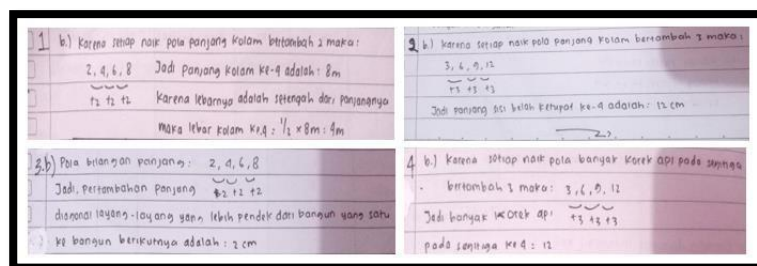 1 b.) Karena setiap naik pola panjang kolam bertambah 2 maka:
2, 4, 6, 8 Jadi panjang kolam ke-4 adalah: 8m
+2 +2 +2 Karena lebarnya adalah setengah dari panjangnya
maka lebar kolam ke.4 : 1/2 x 8m : 4m
2 b.) Karena setiap naik pola panjang kolam bertambah 3 maka:
3, 6, 9, 12
+3 +3 +3
Jadi panjang sisi belah ketupat ke-4 adalah: 12 cm
3.b) Pola bilangan panjang: 2, 4, 6, 8
Jadi, pertambahan panjang +2 +2 +2
diagonal layang-layang yang lebih pendek dari bangun yang satu
ke bangun berikutnya adalah : 2 cm
4 b.) Karena setiap naik pola banyak korek api pada segitiga
bertambah 3 maka: 3, 6, 9, 12
Jadi banyak korek api +3 +3 +3
pada segitiga ke 4 : 12